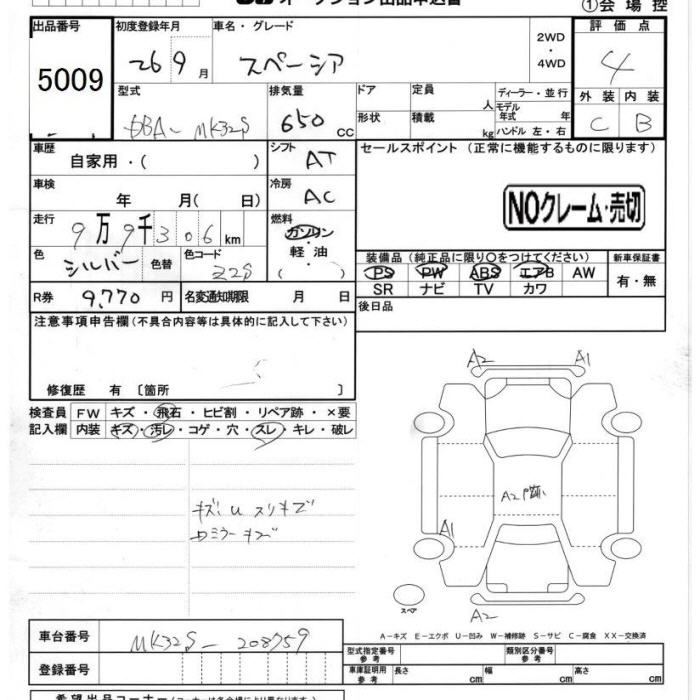 オークション出品申込書
①会場控
出品番号 初度登録年月 車名・グレード 2WD・4WD 評価点
5009 26 9月 スペーシア 4
型式 排気量 ドア 定員 人 ディーラー・並行 外装 内装
DBA- MK32S 650 cc 形状 積載 kg モデル年式 年 ハンドル 左・右 C B
車歴 自家用・( ) シフト AT セールスポイント (正常に機能するものに限ります)
車検 年 月( 日) 冷房 AC
NOクレーム・売切
走行 9万9千306km 燃料 ガソリン・軽油・( )
色 シルバー 色替 色コード Z2S
装備品 (純正品に限り○をつけてください) 新車保証書
PS PW ABS エアB AW 有・無
SR ナビ TV カワ
R券 9,770円 名変通知期限 月 日 後日品
注意事項申告欄 (不具合内容等は具体的に記入して下さい)
修復歴 有 〔箇所 〕
A2 A1
検査員 FW キズ・飛石・ヒビ割・リペア跡・×要
記入欄 内装 キズ・汚レ・コゲ・穴・スレ・キレ・破レ
A2
キズ U スリキズ
ミラーキズ
A1
スペア
A2
A-キズ E-エクボ U-凹み W-補修跡 S-サビ C-腐食 XX-交換済
車台番号 MK32S-208759
型式指定番号 参考 類別区分番号 参考
登録番号 車庫証明用 参考 長さ cm 幅 cm 高さ cm
希望出品コーナー